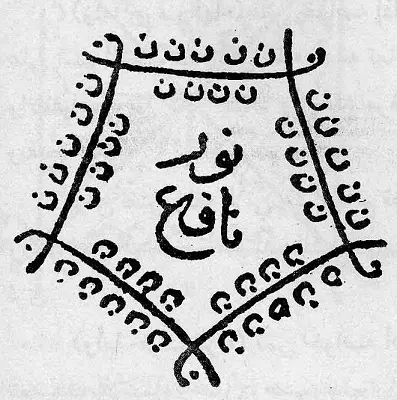 ن ن ن ن ن
ن ن ن ن
ن ن
ن ن ن ن ن
ن ن ن ن
نور
نافع
ن ن ن ن
ن ن ن ن ن
ن ن
ن ن ن ن
ن ن ن ن ن
ن ن ن ن
ن ن ن ن ن
ن